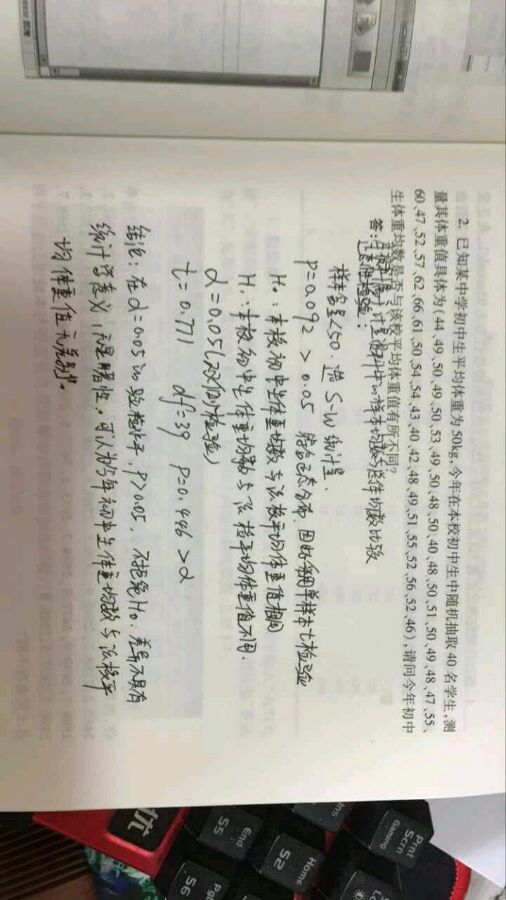 2. 已知某中学初中生平均体重为50kg,今年在本校初中生中随机抽取40名学生,测
量其体重值具体为(44、49、50、49、50、53、49、50、48、50、40、48、50、51、50、49、48、47、55、
60、47、52、57、62、66、61、50、54、54、43、40、42、48、49、51、55、52、56、52、46),请问今年初中
生体重均数是否与该校平均体重值有所不同?
答:
正态性检验:
样本容量<50. 选 S-W 统计量.
P=0.092 > 0.05 符合正态分布. 因此采用单样本t检验
H₀:本校初中生体重均数与该校平均体重值相同
H₁:本校初中生体重均数与该校平均体重值不同.
α=0.05(双侧检验)
t=0.771 df=39 P=0.446>α
结论:在α=0.05的检验水平,P>0.05,不拒绝H₀.差异不具有
统计学意义,
可认为今年初中生体重均数与该校平
均体重值无差别.
Prnt
Scrn
Gaming
Ins
Home
S2
End
S5
S6
优